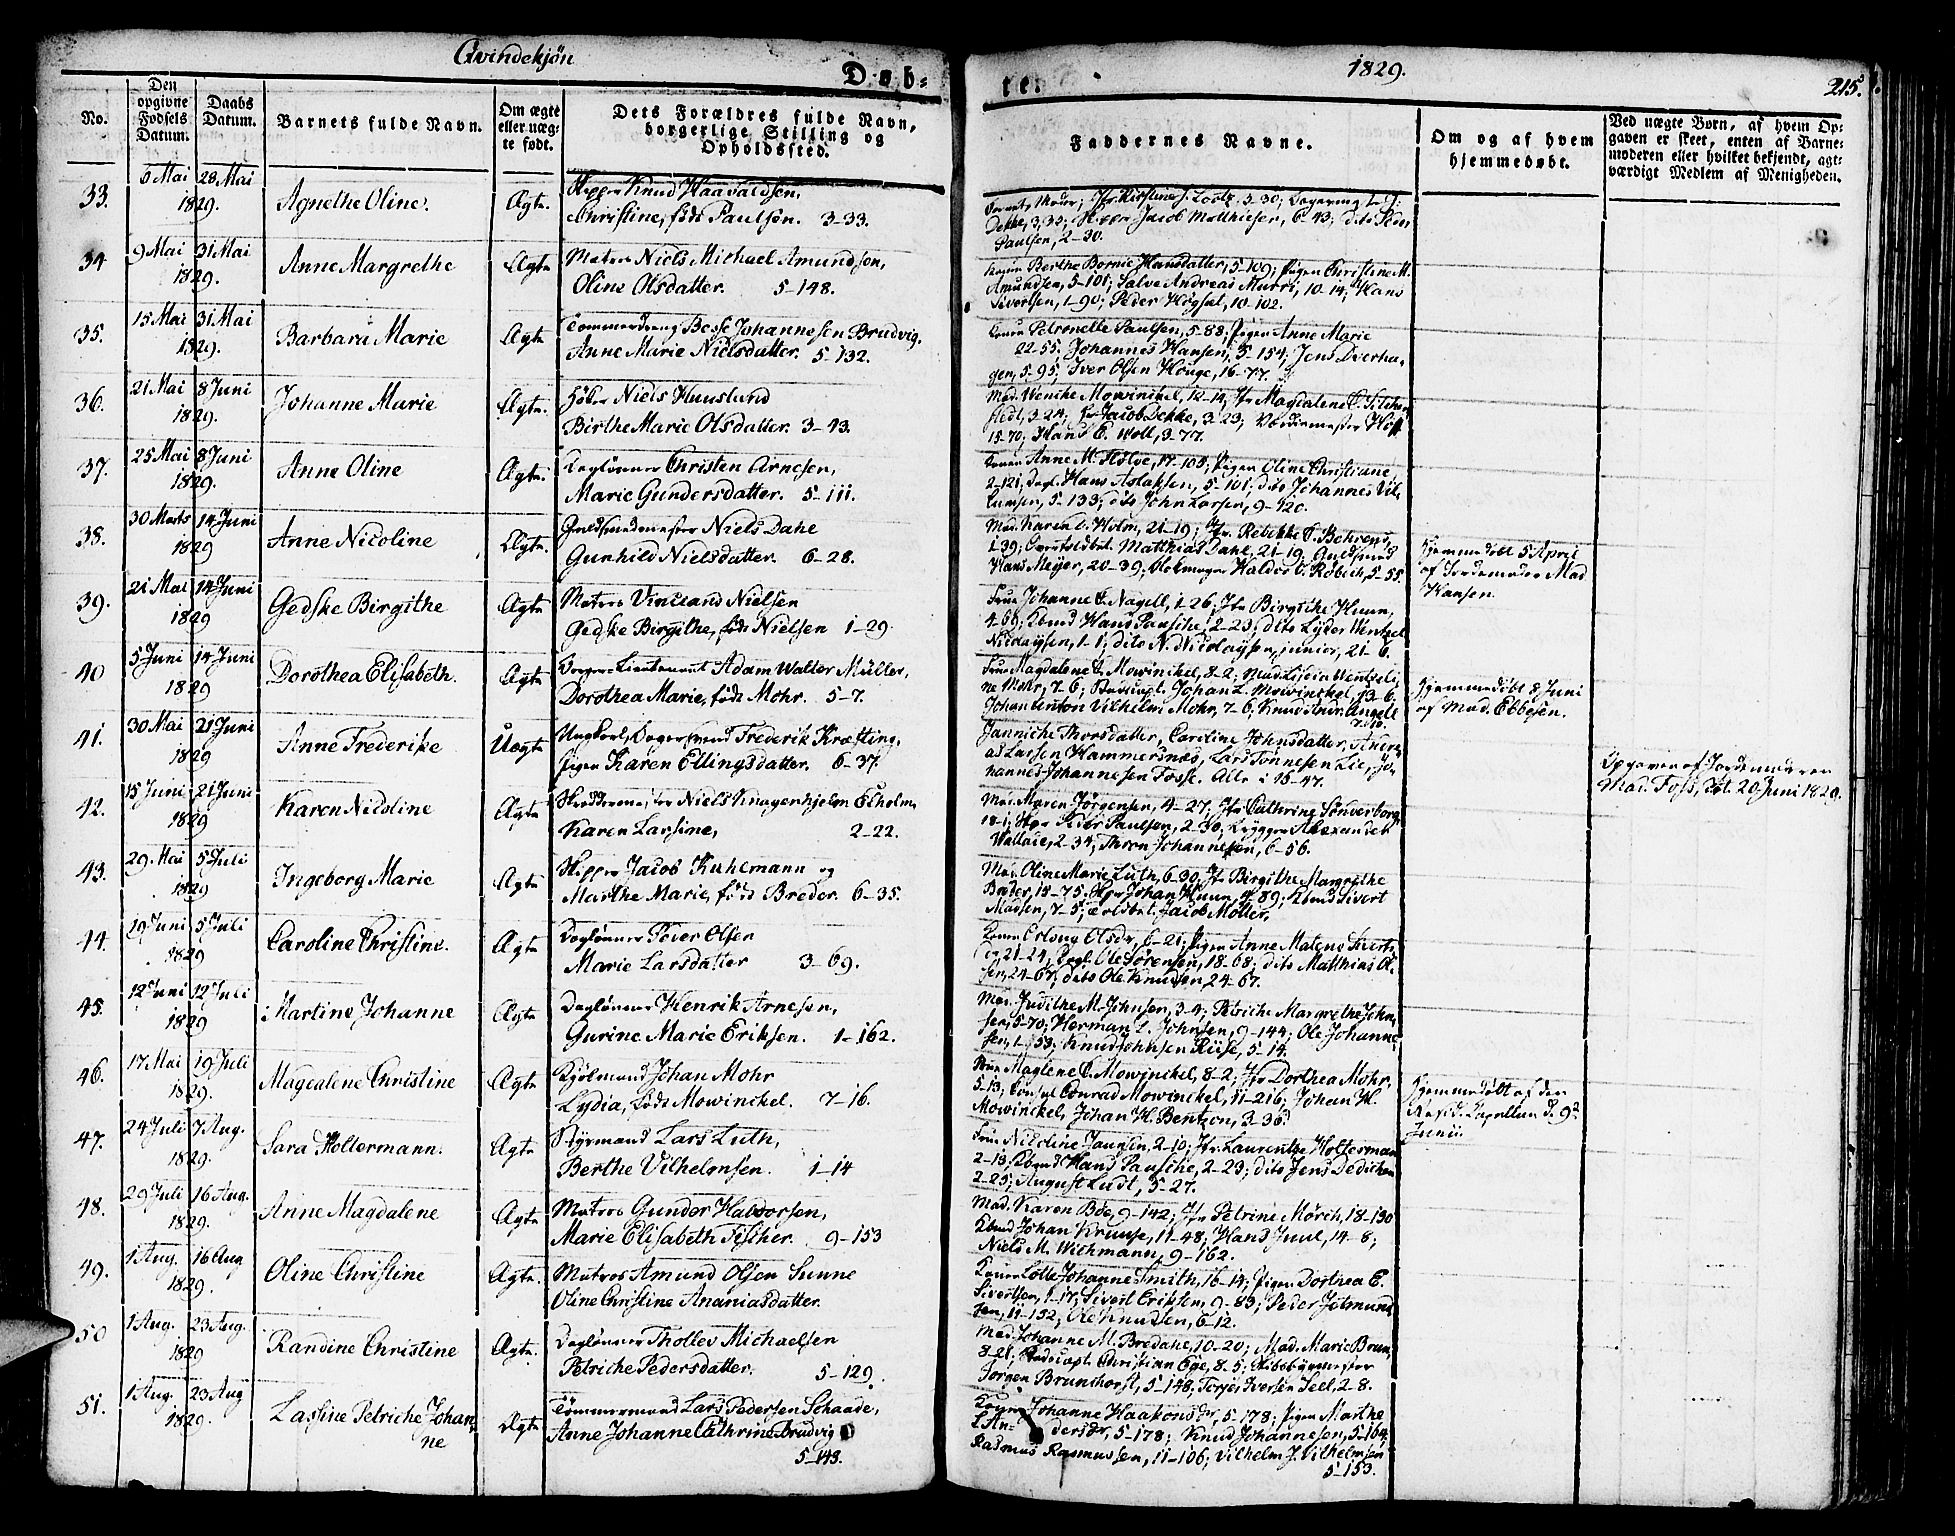 Qvindekjøn
Døb-
te.
1829.
215.
No.
Den opgivne Fødsels Datum.
Daabs Datum.
Barnets fulde Navn.
Om ægte eller uægte født.
Dets Forældres fulde Navn, borgerlige Stilling og Opholdssted.
Faddernes Navne.
Om og af hvem hjemmedøbt.
Ved uægte Børn, af hvem Opgaven er skeet, enten af Barnemoderen eller hvilket bekjendt, agtværdigt Medlem af Menigheden.
33. 6 Mai 28 Mai
1829.
Agnethe Oline. Ægte.
Skipper Knud Haavaldsen,
Christine, født Paulsen. 3-33.
Jacob Matthiesen, 6-43;
Paulsen, 2-30.
34 9 Mai 31 Mai
1829.
Anne Margrethe Ægte
Matros Niels Michael Amundsen,
Oline Olsdatter. 5-148.
Konen Berthe Hansdatter, 5-109; Pigen Christine M.
Amundsen, 5-101; Salve Andreas 10-14; Hans
Sivertsen, 1-90; Peder 10-102.
35. 15 Mai 31 Mai
1829.
Barbara Marie Ægte
Tømmerdreng Besse Johannesen Brudvig.
Anne Marie Nielsdatter. 5-132.
Konen Petronelle Paulsen, 5-88. Pigen Anne Marie
22-55. Johannes Hansen, 5-154; Jens Dverha-
gen, 5-95, Iver Olsen Houge, 16-77.
36. 21 Mai 8 Juni
1829.
Johanne Marie Ægte.
Niels Huuslund
Birthe Marie Olsdatter. 3-43.
Mad. Wenche Mowinckel, 12-14, Jfr Magdalene
3-24; Hr Jacob Dekke, 3-23;
15-70; Hans E. Woll, 3-77.
37. 25 Mai 8 Juni
1829.
Anne Oline Ægte.
Daglønner Christen Arnesen,
Marie Gundersdatter. 5-111.
Konen Anne M. 17-105; Pigen Oline Christiane
2-121, Dagl. Hans Aslaksen, 5-101; dito Johannes Vil-
lumsen, 5-133; dito John Larsen, 9-120.
38. 30 Marts 14 Juni
1829
Anne Nicoline Ægte.
Guldsmedmester Niels Dahl
Gunhild Nielsdatter. 6-28.
Mad. Karen C. Holm, 21-19; Jfr. Rebekke C. Behrens,
1-39; Matthias Dahl, 21-19, Guldsmed
Hans Meyer, 20-39; Haldor 5-55.
Hjemmedøbt 5 April
af Jordemoder Mad
Hansen.
39. 21 Mai 14 Juni
1829
Gedske Birgithe Ægte
Matros Vincland Nielsen
Gedske Birgithe, født Nielsen 1-29.
Frue Johanne C. Nagell, 1-26; Jfr Birgithe Huun,
4-69; Kbmd Hans Pauske, 2-23; dito Lyder Wentzel
Nicolaysen, 1-1; dito N. Nicolaysen, junior, 21-6.
40 5 Juni 14 Juni
1829
Dorothea Elisabeth. Ægte
Borger-Lieutenant Adam Walter Müller,
Dorothea Marie, født Mohr. 5-7.
Frue Magdalene C. Mowinckel, 8-2; Mad.
Mohr, 7-6; Johan Mowinckel, 13-6,
Johan Anton Vilhelm Mohr, 7-6; Knud Angell
7-10.
Hjemmedøbt 8 Juni
af Mad. Ebbesen.
41. 30 Mai 21 Juni
1829
Anne Frederike Uægte
Ungkarl, Bagersvend Frederik Kræfting.
Pigen Karen Ellingsdatter. 6-37.
Jannicke Thorsdatter, Caroline Johnsdatter,
Larsen Hammersnæs, Lars Tønnesen Lie, Jo-
hannes Johannesen Fosse. Alle i 15-47.
Opgaven af Jordemoderen
Mad. Foss, dat. 20 Juni 1829.
42. 15 Juni 21 Juni
1829
Karen Nicoline Ægte
Skræddermester Niels Knagenhjelm Eilholm,
Karen Larsine, 2-22.
Mad. Maren Jørgensen, 4-27; Jfr Cathrine Sønderborg
18-1; Skpr Peder Paulsen, 2-30; Brygger Alexander
Wallace, 2-34; Johannesen, 6-56.
43. 29 Mai 5 Juli
1829
Ingeborg Marie Ægte
Skipper Jacob Kuhlmann og
Marthe Marie, født Breder. 6-35.
Mad. Oline Marie Luth, 6-30, Jfr Birgithe Margrethe
Breder, 18-75; Skpr Johan Huun, 4-89; Kbmd Sivert
Madsen, 7-5; Jacob Møller.
44. 19 Juni 5 Juli
1829
Caroline Christine. Ægte
Daglønner Peder Olsen
Marie Larsdatter 3-69.
Konen Olsdr, 6-21; Pigen Anne Malene
21-24, Dagl. Ole Sørensen, 18-68; dito Matthias Ol-
sen, 24-67, dito Ole Knudsen, 24-67.
45. 12 Juni 12 Juli
1829
Martine Johanne Ægte
Dagløner Henrik Arnesen,
Gurine Marie Eriksen. 1-162.
Mad. Judithe M. Johnsen, 3-4; Petriche Margrethe John-
sen, 5-70; Herman L. Johnsen, 9-144; Ole Johanne-
sen, 1-153; Knud Johnsen Riise, 5-14.
46. 17 Mai 19 Juli
1829.
Magdalene Christine Ægte
Kjøbmand Johan Mohr
Lydia, født Mowinckel. 7-16.
Frue Maglene C. Mowinckel, 8-2; Jfr Dorthea Mohr,
5-13; Consul Conrad Mowinckel, 11-216; Johan H.
Mowinckel, Johan H. Bentzon, 3-36.
Hjemmedøbt af den
Resid. Capellan d. 9de
Junii.
47. 24 Juli 7 Aug.
1829.
Sara Holtermann. Ægte
Styrmand Lars Luth,
Berthe Vilhelmsen. 1-14
Frue Nicoline Jansen, 2-10; Jfr. Laurentze Holterman
2-13, Kbmd Hans Pauske, 2-23; dito Jens Dedichen
2-25; August Ludt, 5-27.
48. 29 Juli 16 Aug.
1829.
Anne Magdalene Ægte
Matros Gunder Halvorsen,
Marie Elisabeth Fischer. 9-153
Mad. Karen Bøe, 9-142; Jfr Petrine Mørch, 18-130
Kbmd Johan Kruuse, 11-48; Hans Juul, 14-8;
Niels M. Wichmann, 9-162.
49. 1 Aug. 16 Aug
1829.
Oline Christine Ægte.
Matros Amund Olsen Sunne
Oline Christine Ananiasdatter.
Konen Lotte Johanne Smith, 16-14; Pigen Dorthea E.
Sivertsen, 1-17; Sivert Eriksen, 9-83; Peder
sen, 11-152, Ole Knudsen, 6-12.
50 1 Aug. 23 Aug.
1829
Randine Christine Ægte.
Daglønner Thollev Michaelsen
Petriche Pedersdatter. 5-129.
Mad. Johanne M. Bredahl, 10-20; Mad. Marie Brun,
8-21, Christian Eye, 8-5; Skibsbygmester
Jørgen Brunchorst, 5-148; Torjer Iversen 2-8.
51. 1 Aug. 23 Aug
1829.
Lassine Petriche Johan-
ne
Ægte
Tømmermand Lars Pedersen Schaade,
Anne Johanne Cathrine Brudvig
5-143.
Konen Johanne Haakonsdr, 5-178; Pigen Marthe
An-
dersdr, 5-178; Knud Johannesen, 5-164,
Rasmus Rasmussen, 11-106; Vilhelm J. Vilhelmsen
5-153.